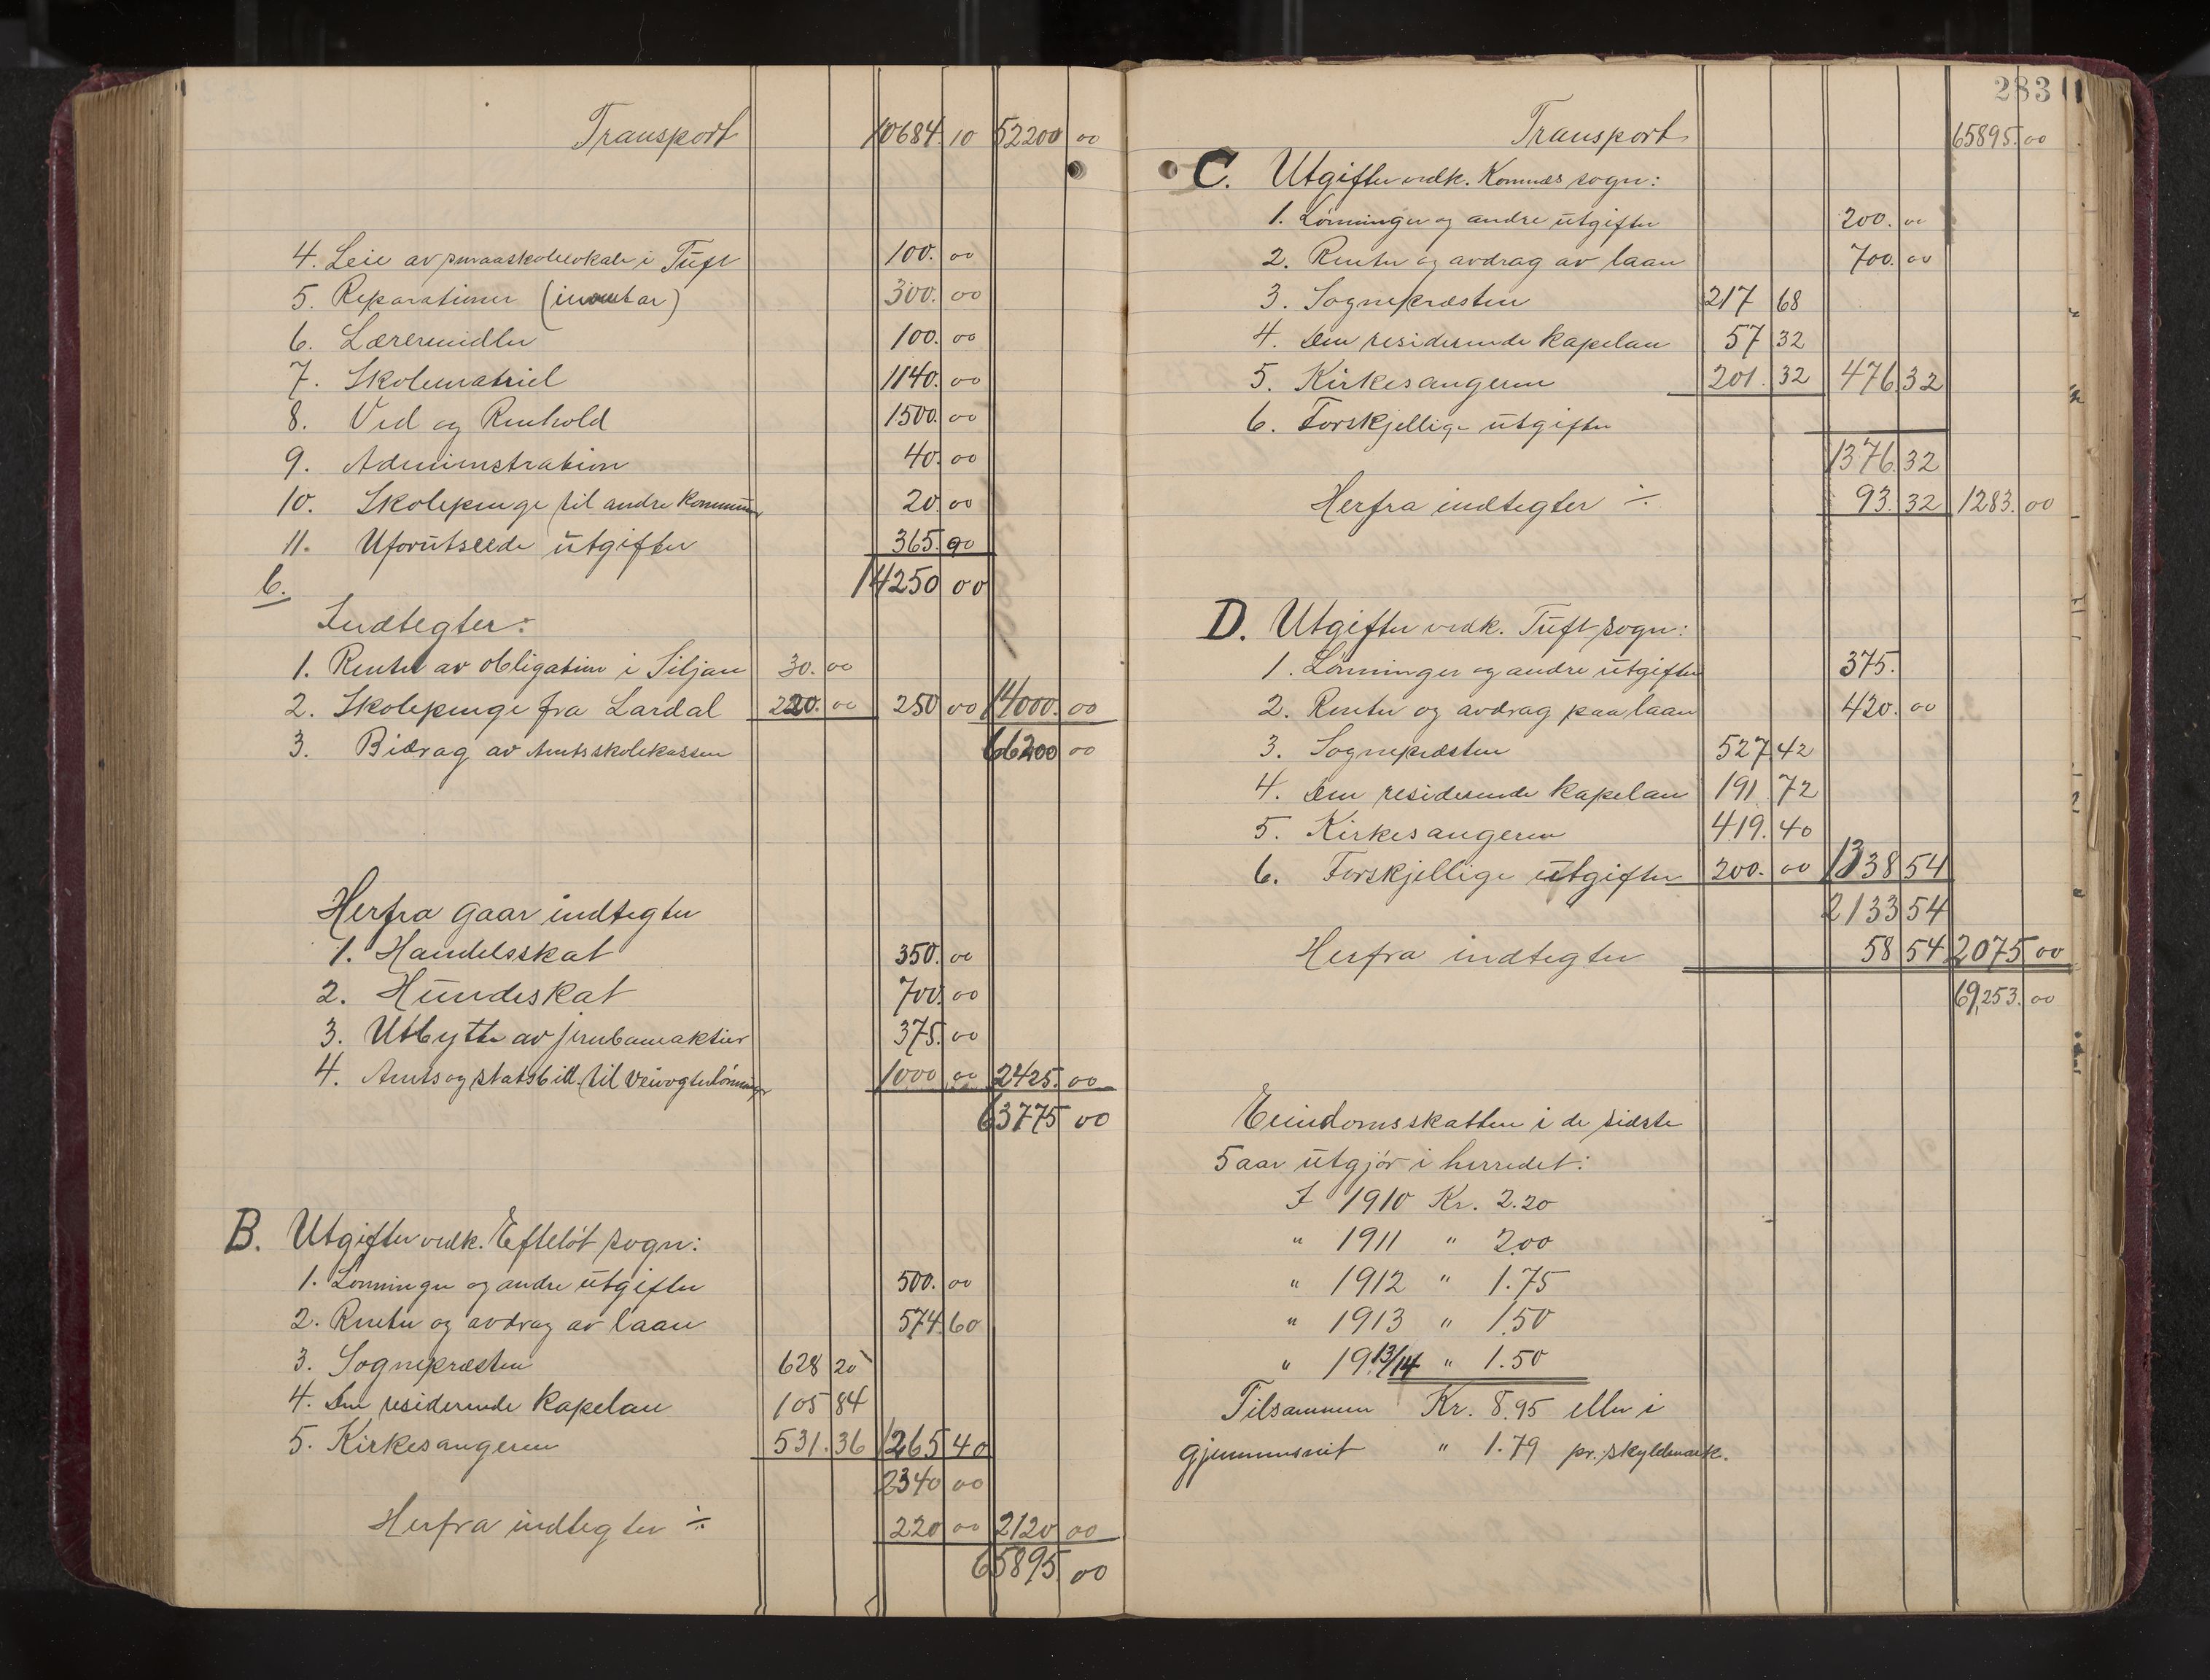 Transport 10684.10 52200 00
4. Leie av smaaskolelokale i Tuft 100. 00
5. Reparationer (inventar) 300. 00
6. Læremidler 100. 00
7. Skolematriel 1140. 00
8. Ved og Renhold 1500. 00
9. Administration 40. 00
10. Skolepenge til andre kommuner 20. 00
11. Uforutseede utgifter 365. 90
14250 00
b.
Indtegter:
1. Renter av obligation i Siljan 30. 00
2. Skolepenge fra Lardal 220. 00 250 00 14000. 00
3. Bidrag av Amtsskolekassen 66200 00
Herfra gaar indtegter
1. Handelsskat 350. 00
2. Hundeskat 700. 00
3. Utbytte av jernbaneaktier 375. 00
4. Amts og statsbidr. til veivogterlønninger 1000 00 2425. 00
63775 00
B. Utgifter vedk. Efteløt sogn:
1. Lønninger og andre utgifter 500. 00
2. Renter og avdrag av laan 574.60
3. Sognepræsten 628 20
4. Den residerende kapelan 105 84
5. Kirkesangeren 531.36 1265 40
2340 00
Herfra indtegter ÷ 220 00 2120 00
65895. 00
283
Transport 65895. 00
C. Utgifter vedk. Komnes sogn:
1. Lønninger og andre utgifter 200. 00
2. Renter og avdrag av laan 700. 00
3. Sognepræsten 217 68
4. Den residerende kapelan 57 32
5. Kirkesangeren 201. 32 476 32
6. Forskjellige utgifter
1376.32
Herfra indtegter ÷ 93.32 1283. 00
D. Utgifter vedk. Tuft sogn:
1. Lønninger og andre utgifter 375.
2. Renter og avdrag paa laan 420. 00
3. Sognepræsten 527.42
4. Den residerende kapelan 191 72
5. Kirkesangeren 419. 40
6. Forskjellige utgifter 200. 00 1338 54
2133 54
Herfra indtegter 58 54 2075 00
69,253. 00
Eiendomsskatten i de sidste
5 aar utgjør i herredet:
I 1910 Kr. 2.20
" 1911 " 2.00
" 1912 " 1.75
" 1913 " 1.50
" 1913/14 " 1.50
Tilsammen Kr. 8.95 eller i
gjennemsnit " 1.79 pr. skyldmark.